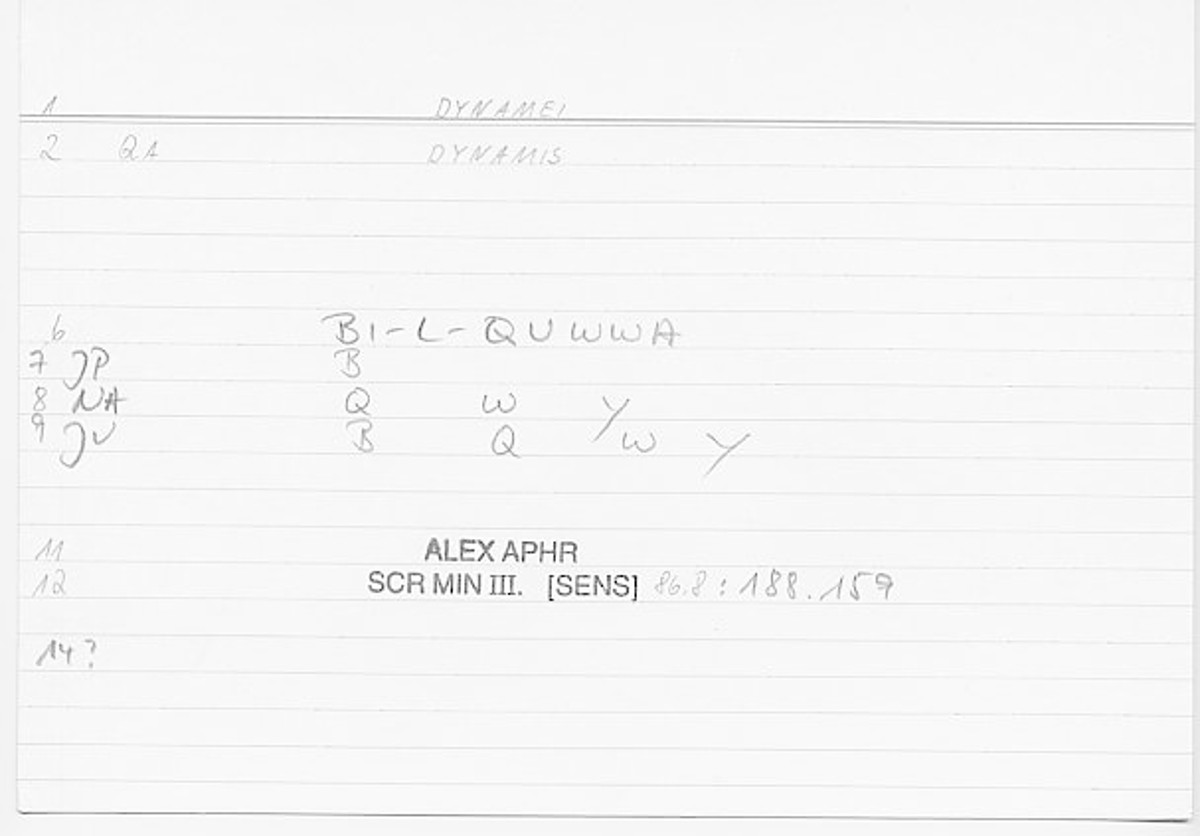 1 DYNAMEI
2 QA DYNAMIS
6 BI-L-QUWWA
7 JP B
8 NA Q W Y
9 JV B Q W Y
11 ALEX APHR
12 SCR MIN III. [SENS] 86.8 : 188.159
14?